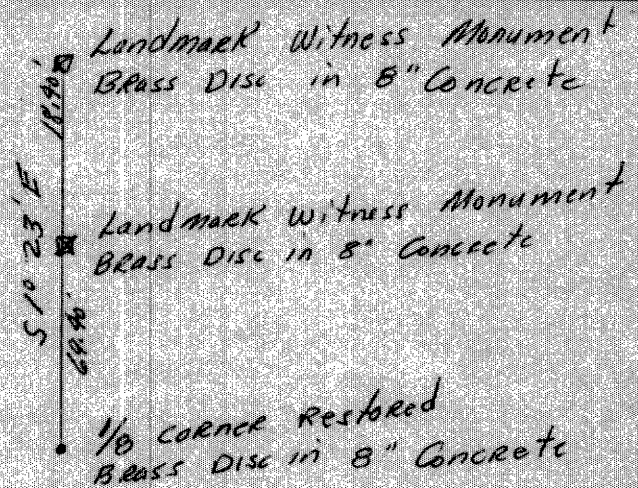 Landmark Witness Monument
Brass Disc in 8" Concrete
18.90'
S 1° 23' E
Landmark Witness Monument
Brass Disc in 8" Concrete
69.90'
1/8 Corner Restored
Brass Disc in 8" Concrete